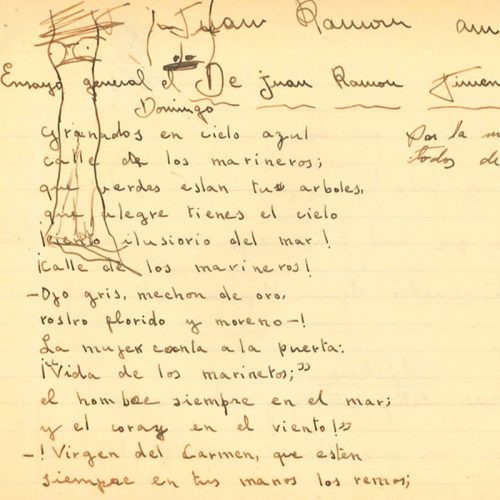 Juan Ramon am
Ensayo general el De Juan Ramon Jimen
Domingo
Granados en cielo azul
calle de los marineros;
que verdes estan tus arboles,
que alegre tienes el cielo
¡Viento ilusiorio del mar!
¡Calle de los marineros!
-Ojo gris, mechon de oro,
rostro florido y moreno-!
La mujer canta a la puerta:
¡"Vida de los marineros;"
el hombre siempre en el mar;
y el corazon en el viento!"
-! Virgen del Carmen, que esten
siempre en tus manos los remos;
Por la
todos de